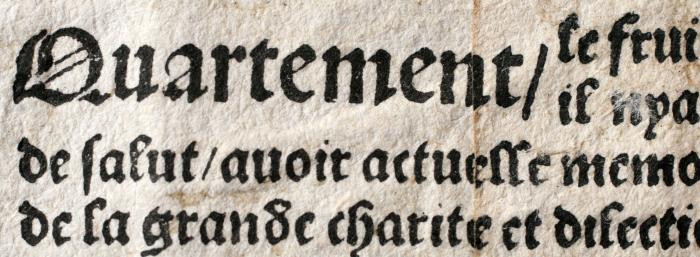 Quartement/
le frui
il nya
de salut/auoir actuelle memo
de la grande charite et dilectio